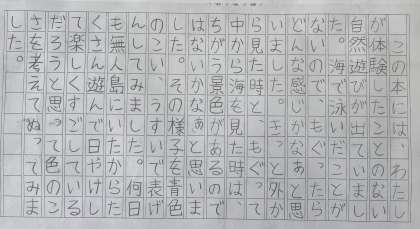 この本には、わたし
が体験したことのない
自然遊びが出ていまし
た。海で泳いだことが
ないので、もぐったら
どんな感じかなぁと思
いました。きっと外か
ら見た時と、もぐって
中から海を見た時は、
ちがう景色があるので
はないかなぁと思いま
した。その様子を青色
のこい、うすいで表げ
んしてみました。何日
も無人島にいたからた
くさん遊んで日やけし
て楽しくすごしている
だろうと思って色のこ
さを考えてぬってみま
した。